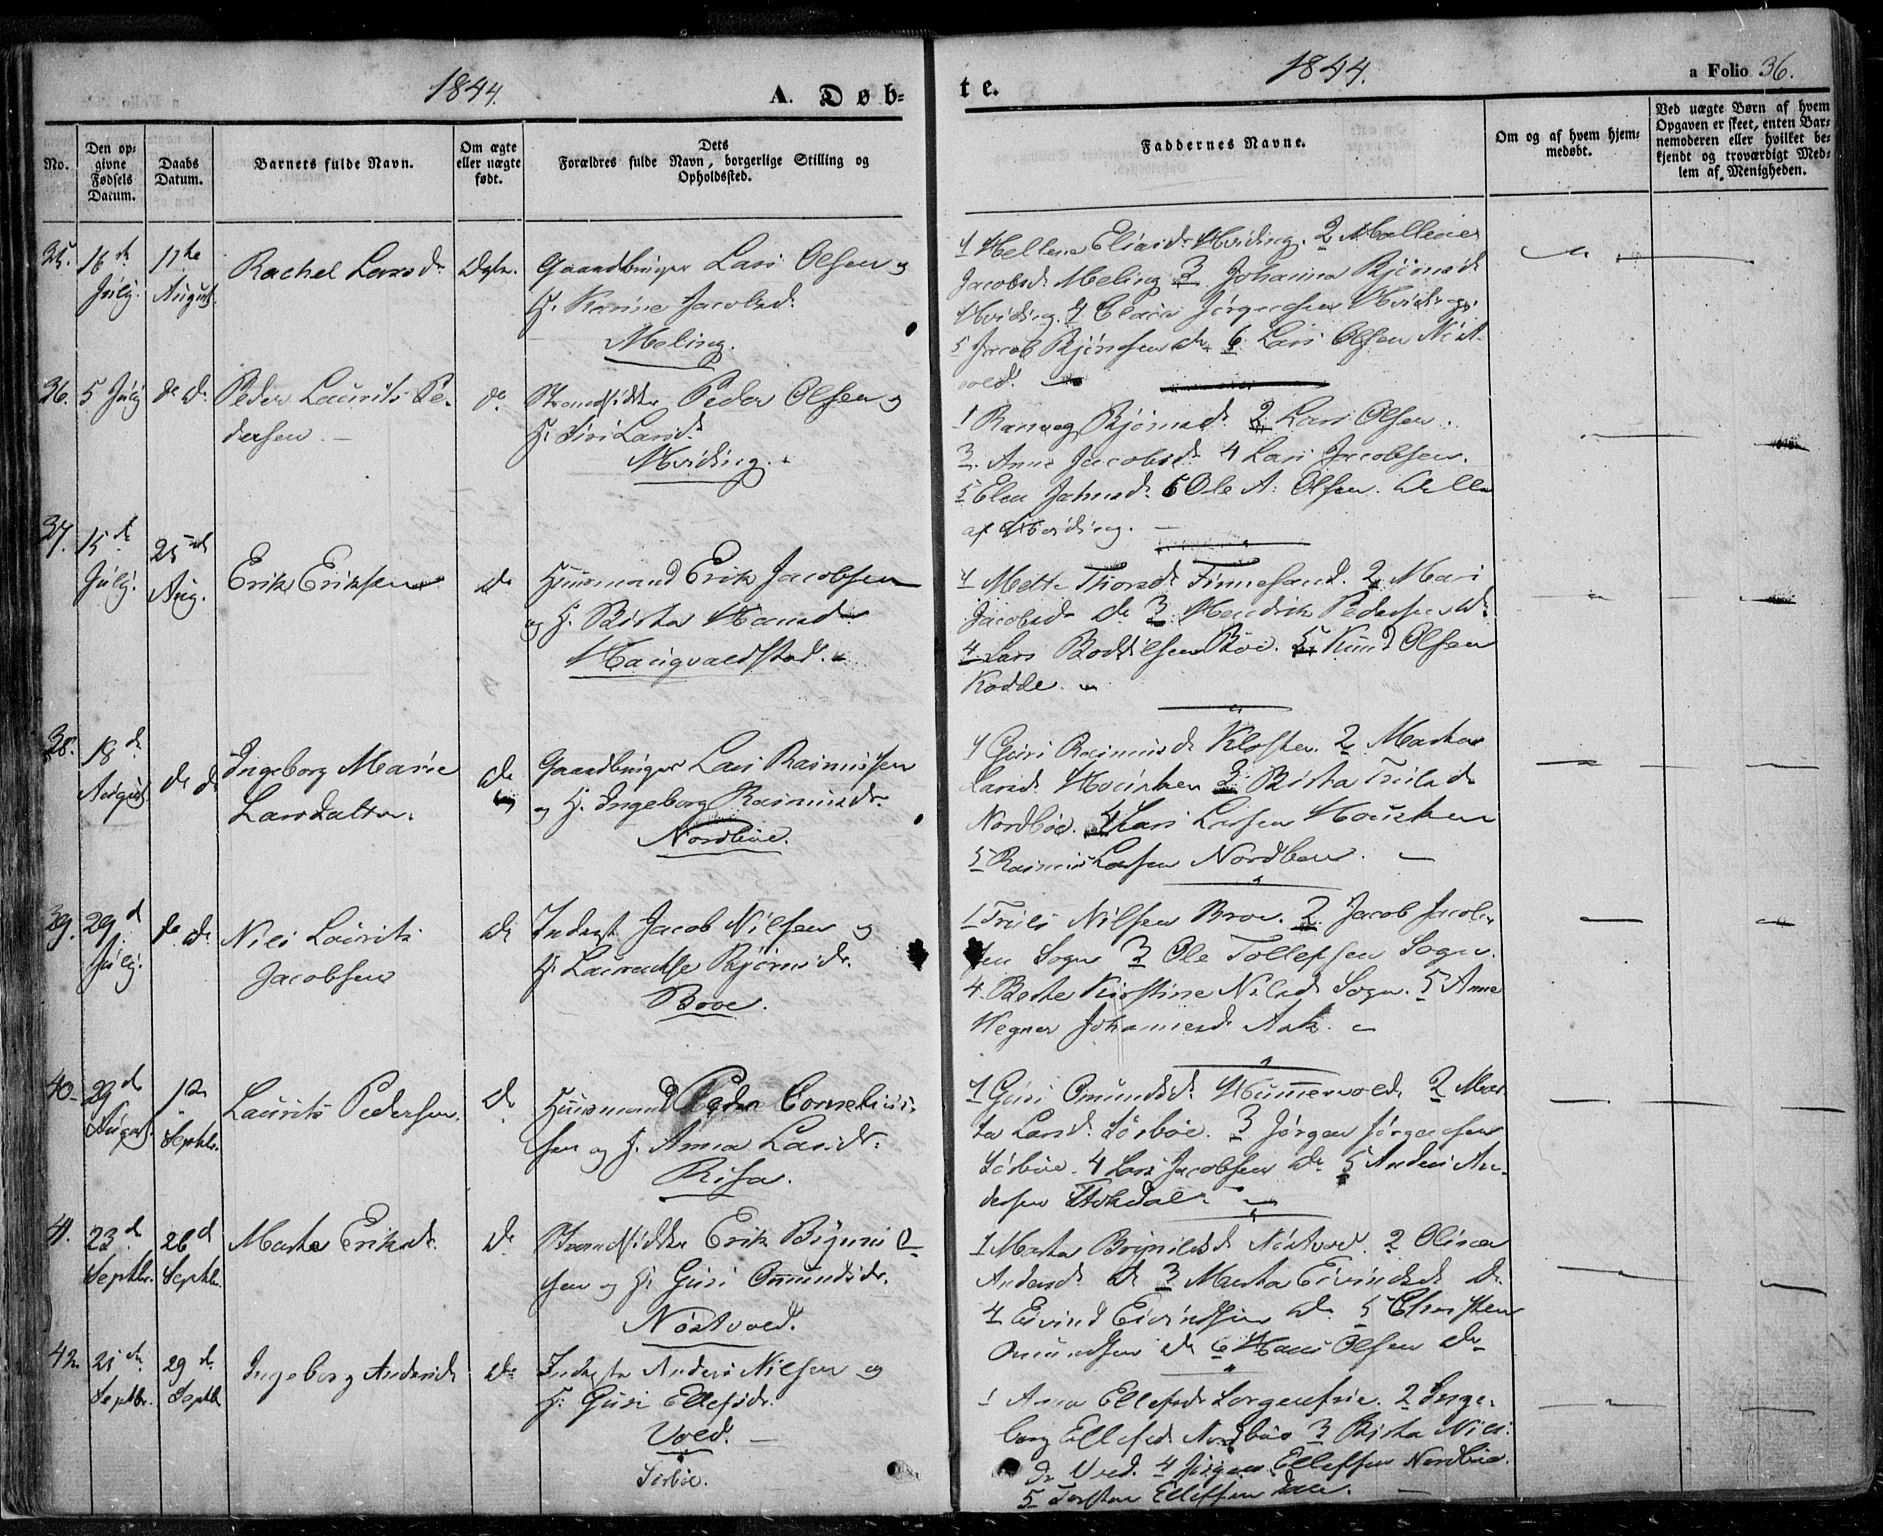 1844.
A. Døb=
No.
Den op=
givne
Fødsels
Datum.
Daabs
Datum.
Barnets fulde Navn.
Om ægte
eller uægte
født.
Dets
Forældres fulde Navn, borgerlige Stilling og
Opholdssted.
35.
16de
July.
11te
August.
Rachel Larsd.
Ægte.
Gaardbruger Lars Olsen og
H. Karine Jacobsd.
Meling.
36.
5 July
do do
Peder Laurits Pe-
dersen
do
Strandsidder Peder Olsen og
H. Siri Larsd.
Hviding.
37.
15de
July.
25de
Aug.
Erik Eriksen
do
Huusmand Erik Jacobsen
og H. Birta Hansd.
Haugvaldstad.
38.
18de
August
do do
Ingeborg Marie
Larsdatter.
do
Gaardbruger Lars Rasmussen
og H. Ingeborg Rasmusdr.
Nordböe.
39.
29d
July.
do do
Nils Laurits
Jacobsen
do
Inderst Jacob Nilsen og
H. Lauredtse Bjørnsdr.
Broe.
40.
29de
August.
1te
Septbr.
Laurits Pedersen.
do
Huusmand Peder Cornelius-
sen og H. Anna Larsdr.
Risa.
41.
23de
Septbr.
26d
Septbr.
Marta Eriksd.
do
Strandsidder Erik
sen og H. Guri Omundsdr.
Nöstvold.
42.
21de
Septbr.
29de
Septbr
Ingeborg Andersd.
do
Inderste Anders Nilsen og
H. Guri Ellefsdr.
Vold.
Sörböe.
1844.
a Folio 36.
te.
Faddernes Navne.
Om og af hvem hjem=
medøbt.
Ved uægte Børn af hvem
Opgaven er skeet, enten Bar=
nemoderen eller hvilket be=
kjendt og troværdigt Med=
lem af Menigheden.
1 Hellena Eliasdr Hviding. 2 Mallene
Jacobsd. Meling 3 Johanna Bjørnsd
Hviding. 4 Elias Jørgensen Hviding.
5 Jacob Bjørnsen do 6 Lars Olsen Nöst-
vold.
1 Ranveg Bjørnsd. 2 Lars Olsen.
3. Anna Jacobsd. 4 Lars Jacobsen.
5 Elen Johnsd. 6 Ole A. Olsen. Alle
af Hviding.
1 Mette Thorsd. Finnesand. 2 Mari
Jacobsd. do 3 Hendrik Pedersen do
4 Lars Bodtilsen Böe. 5 Knud Olsen
Kodde.
1 Guri Rasmusd. Kloster. 2 Marta
Larsd. Houshen 3 Birta Truilsd
Nordböe. 4 Lars Larsen Houshen
5 Rasmus Larsen Nordböe.
1 Truls Nilsen Broe. 2 Jacob Jacob-
sen Sogn 3 Ole Tollefsen Sogn.
4. Berte Kirstine Nilsd. Sogn. 5 Anne
Johannesd.
1 Guri Omundsd. 2 Mar-
ta Larsd. Sörböe. 3 Jörgen Jörgensen
Sörböe. 4 Lars Jacobsen do 5 Anders An-
dersen
1 Marta Nöstvold. 2 Olina
Andersd. do 3 Marta Eivindsd. do
4 Eivind Eivindsen do 5 Christen
Omundsen do 6 Hans Olsen do
1 Anna Ellefsd. Sorgenfrie. 2 Inge-
borg Ellefsd. Nordböe 3 Birta Nils-
d. Vold. 4 Jörgen Ellefsen Nordböe
5 Torsten Ellefsen Dale.